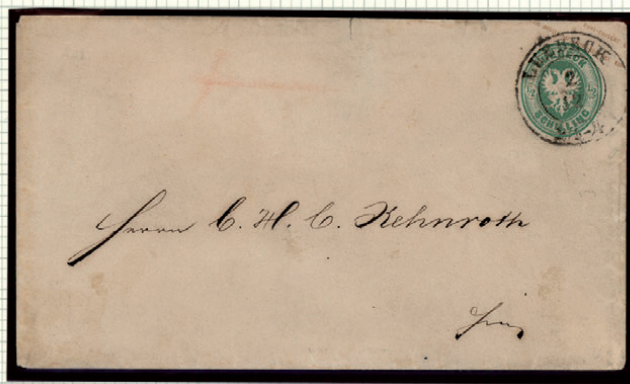 LUEBECK
2
LUEBECK
SCHILLING
Herrn C. H. C. Rehnroth
hier